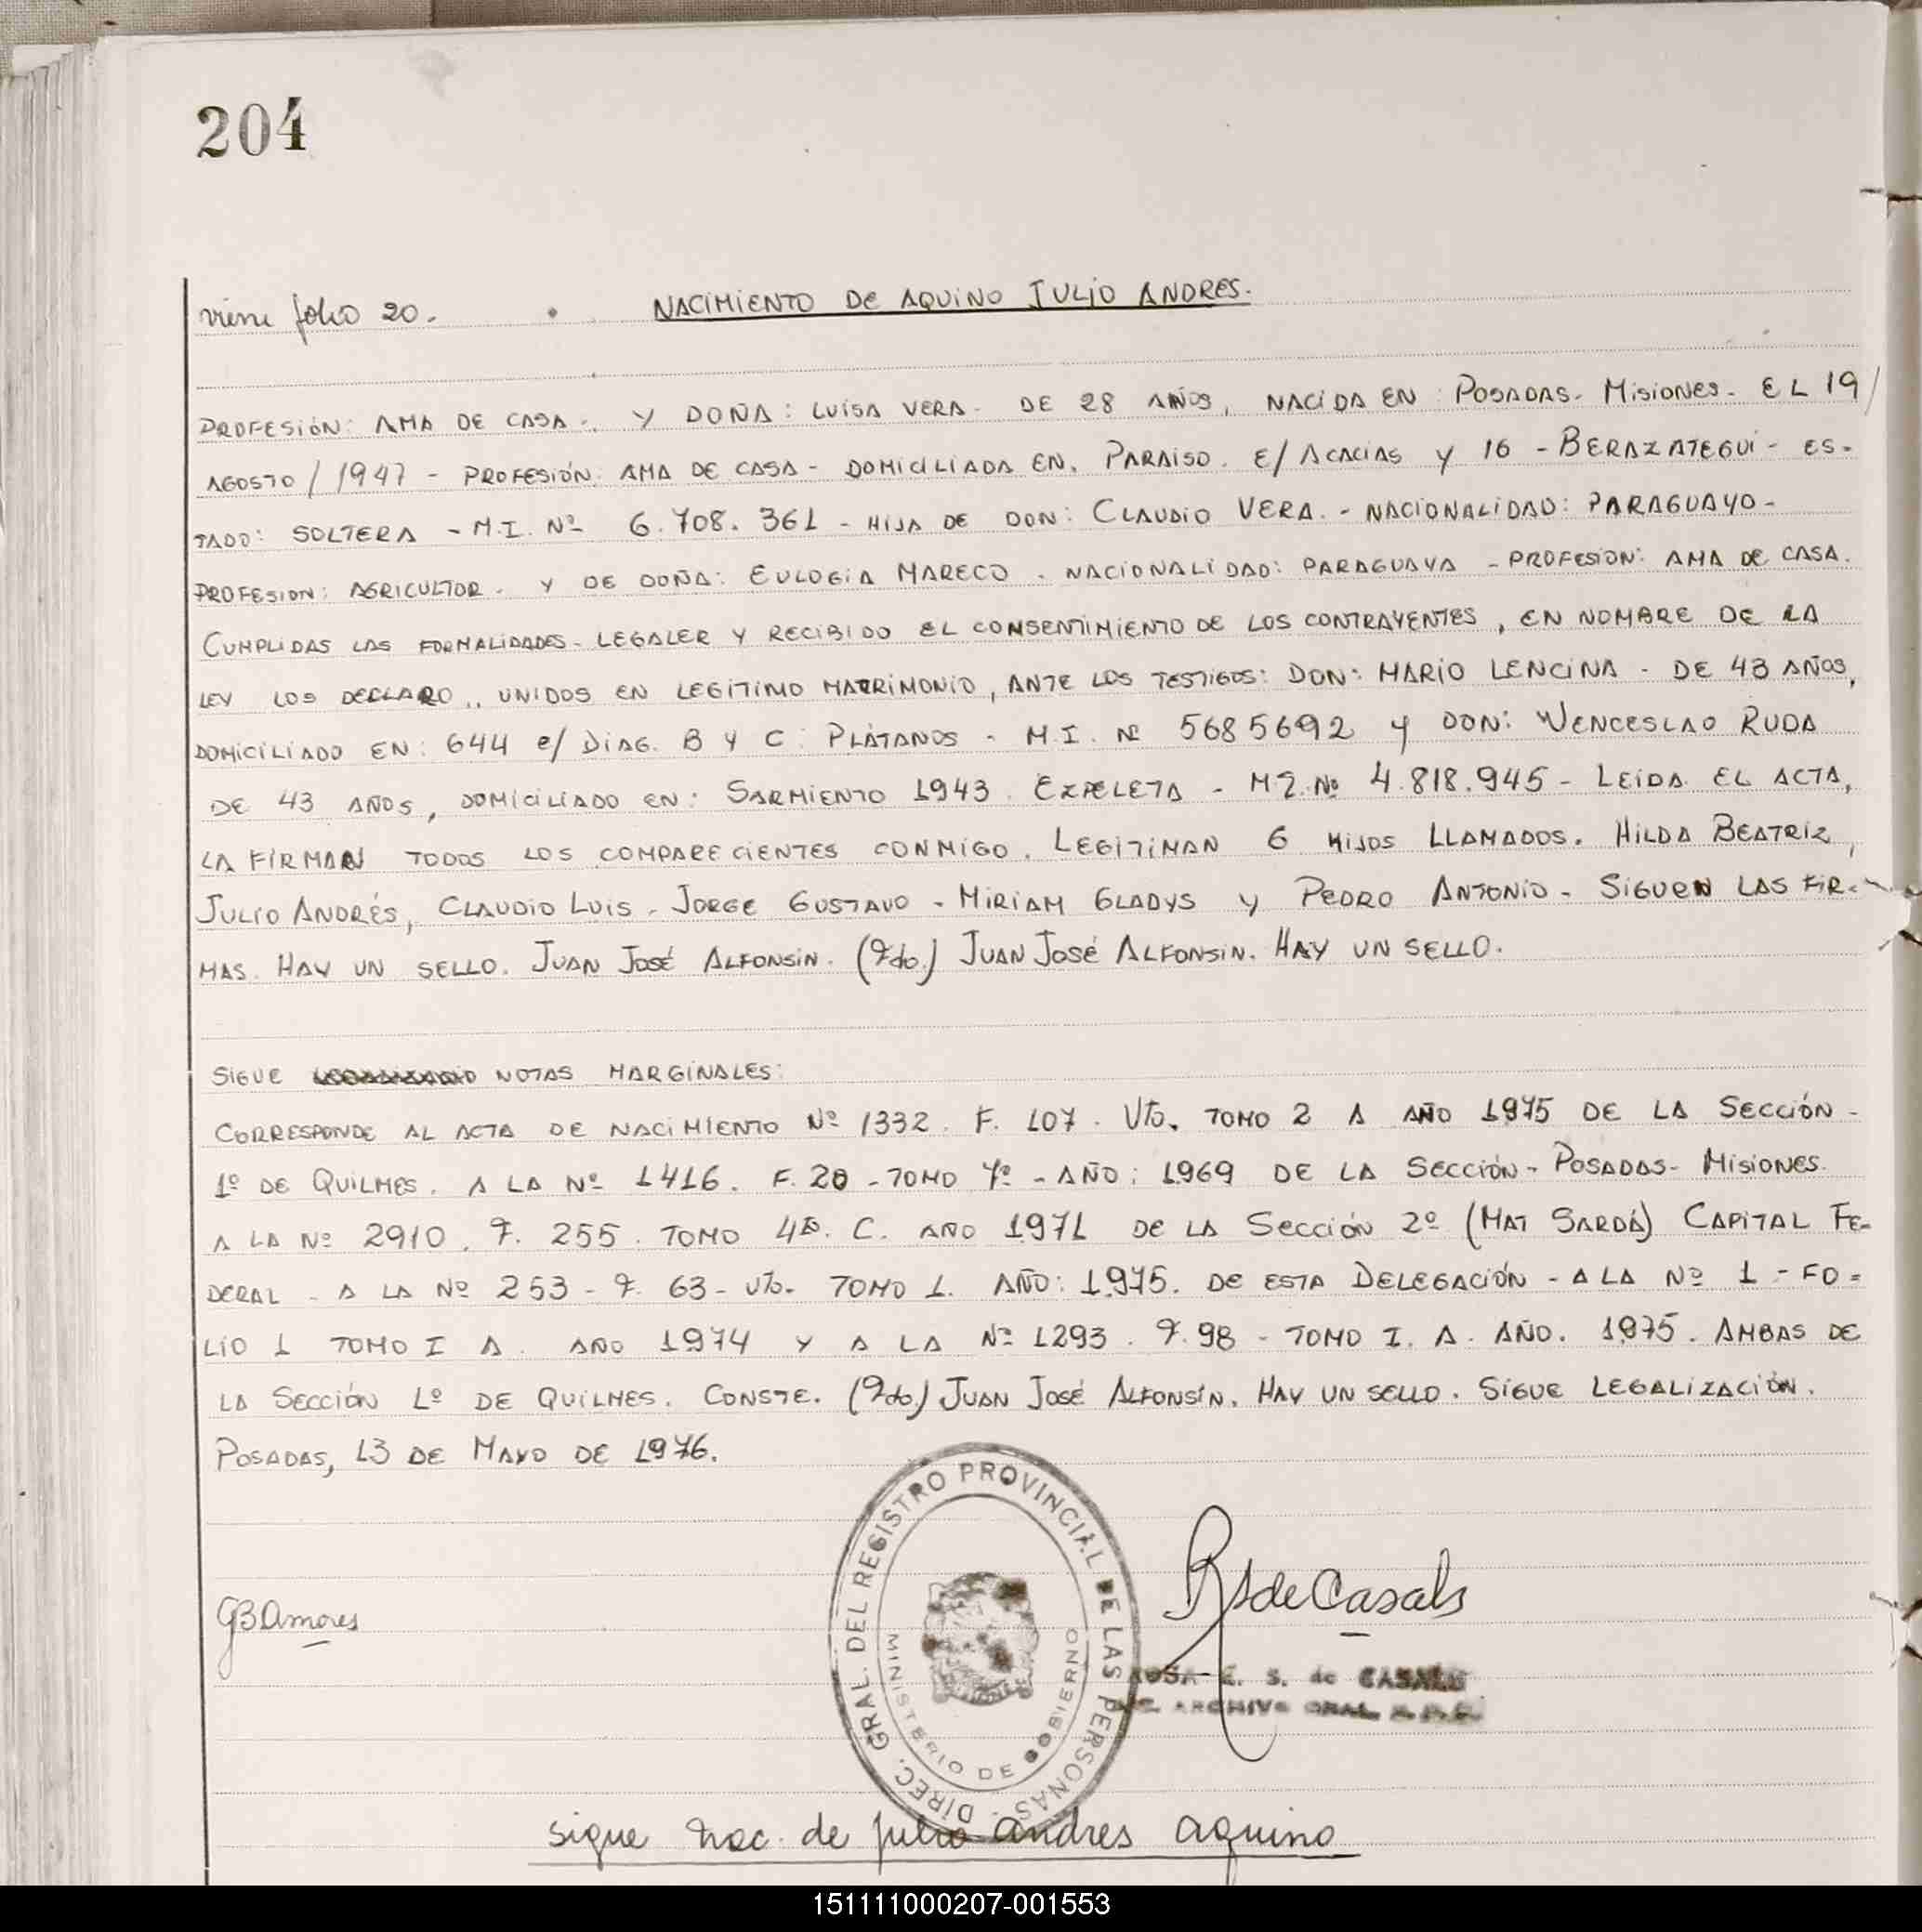 204
viene folio 20. NACIMIENTO DE AQUINO JULIO ANDRES.
PROFESIÓN: AMA DE CASA. Y DOÑA: LUISA VERA. DE 28 AÑOS, NACIDA EN: POSADAS. MISIONES. EL 19/
AGOSTO/1947 - PROFESIÓN: AMA DE CASA - DOMICILIADA EN. PARAISO. E/ ACACIAS Y 16 - BERAZATEGUI - ES-
TADO: SOLTERA - M.I. Nº 6.708.361 - HIJA DE DON: CLAUDIO VERA. - NACIONALIDAD: PARAGUAYO -
PROFESION: AGRICULTOR. Y DE DOÑA: EULOGIA MARECO. NACIONALIDAD: PARAGUAYA - PROFESION: AMA DE CASA.
CUMPLIDAS LAS FORMALIDADES - LEGALER Y RECIBIDO EL CONSENTIMIENTO DE LOS CONTRAYENTES, EN NOMBRE DE LA
LEY LOS DECLARO.. UNIDOS EN LEGITIMO MATRIMONIO, ANTE LOS TESTIGOS: DON: MARIO LENCINA - DE 43 AÑOS,
DOMICILIADO EN: 644 e/ DIAG. B Y C. PLÁTANOS - M.I. Nº 5685692 Y DON: WENCESLAO RUDA
DE 43 AÑOS, DOMICILIADO EN: SARMIENTO 1943. EZPELETA - M I. Nº 4.818.945 - LEIDA EL ACTA,
LA FIRMAN TODOS LOS COMPARECIENTES CONMIGO. LEGITIMAN 6 HIJOS LLAMADOS. HILDA BEATRIZ,
JULIO ANDRÉS, CLAUDIO LUIS - JORGE GUSTAVO - MIRIAM GLADYS Y PEDRO ANTONIO - SIGUEN LAS FIR-
MAS. HAY UN SELLO. JUAN JOSÉ ALFONSIN. (Fdo.) JUAN JOSÉ ALFONSIN. HAY UN SELLO.
SIGUE NOTAS MARGINALES:
CORRESPONDE AL ACTA DE NACIMIENTO Nº 1332. F. 107. Vto. TOMO 2 A AÑO 1975 DE LA SECCIÓN -
1º DE QUILMES. A LA Nº 1416. F. 20 - TOMO 7º - AÑO: 1969 DE LA SECCIÓN - POSADAS - MISIONES.
A LA Nº 2910. F. 255. TOMO 4º. C. AÑO 1971 DE LA SECCIÓN 2º (MAT SARDÁ) CAPITAL FE-
DERAL - A LA Nº 253 - F. 63 - Vto. TOMO 1. AÑO: 1975. DE ESTA DELEGACIÓN - A LA Nº 1 - FO=
LIO 1 TOMO I A. AÑO 1974 Y A LA Nº 1293. F. 98 - TOMO I. A. AÑO. 1975. AMBAS DE
LA SECCIÓN 1º DE QUILMES. CONSTE. (Fdo.) JUAN JOSÉ ALFONSIN. HAY UN SELLO. SIGUE LEGALIZACIÓN.
POSADAS, 13 DE MAYO DE 1976.
DIREC. GRAL. DEL REGISTRO PROVINCIAL DE LAS PERSONAS -
MINISTERIO DE GOBIERNO
GBAmores
RSdeCasals
ROSA E. S. de CASALS
ARCHIVO GRAL.
sigue nac. de julio andres aquino
151111000207-001553